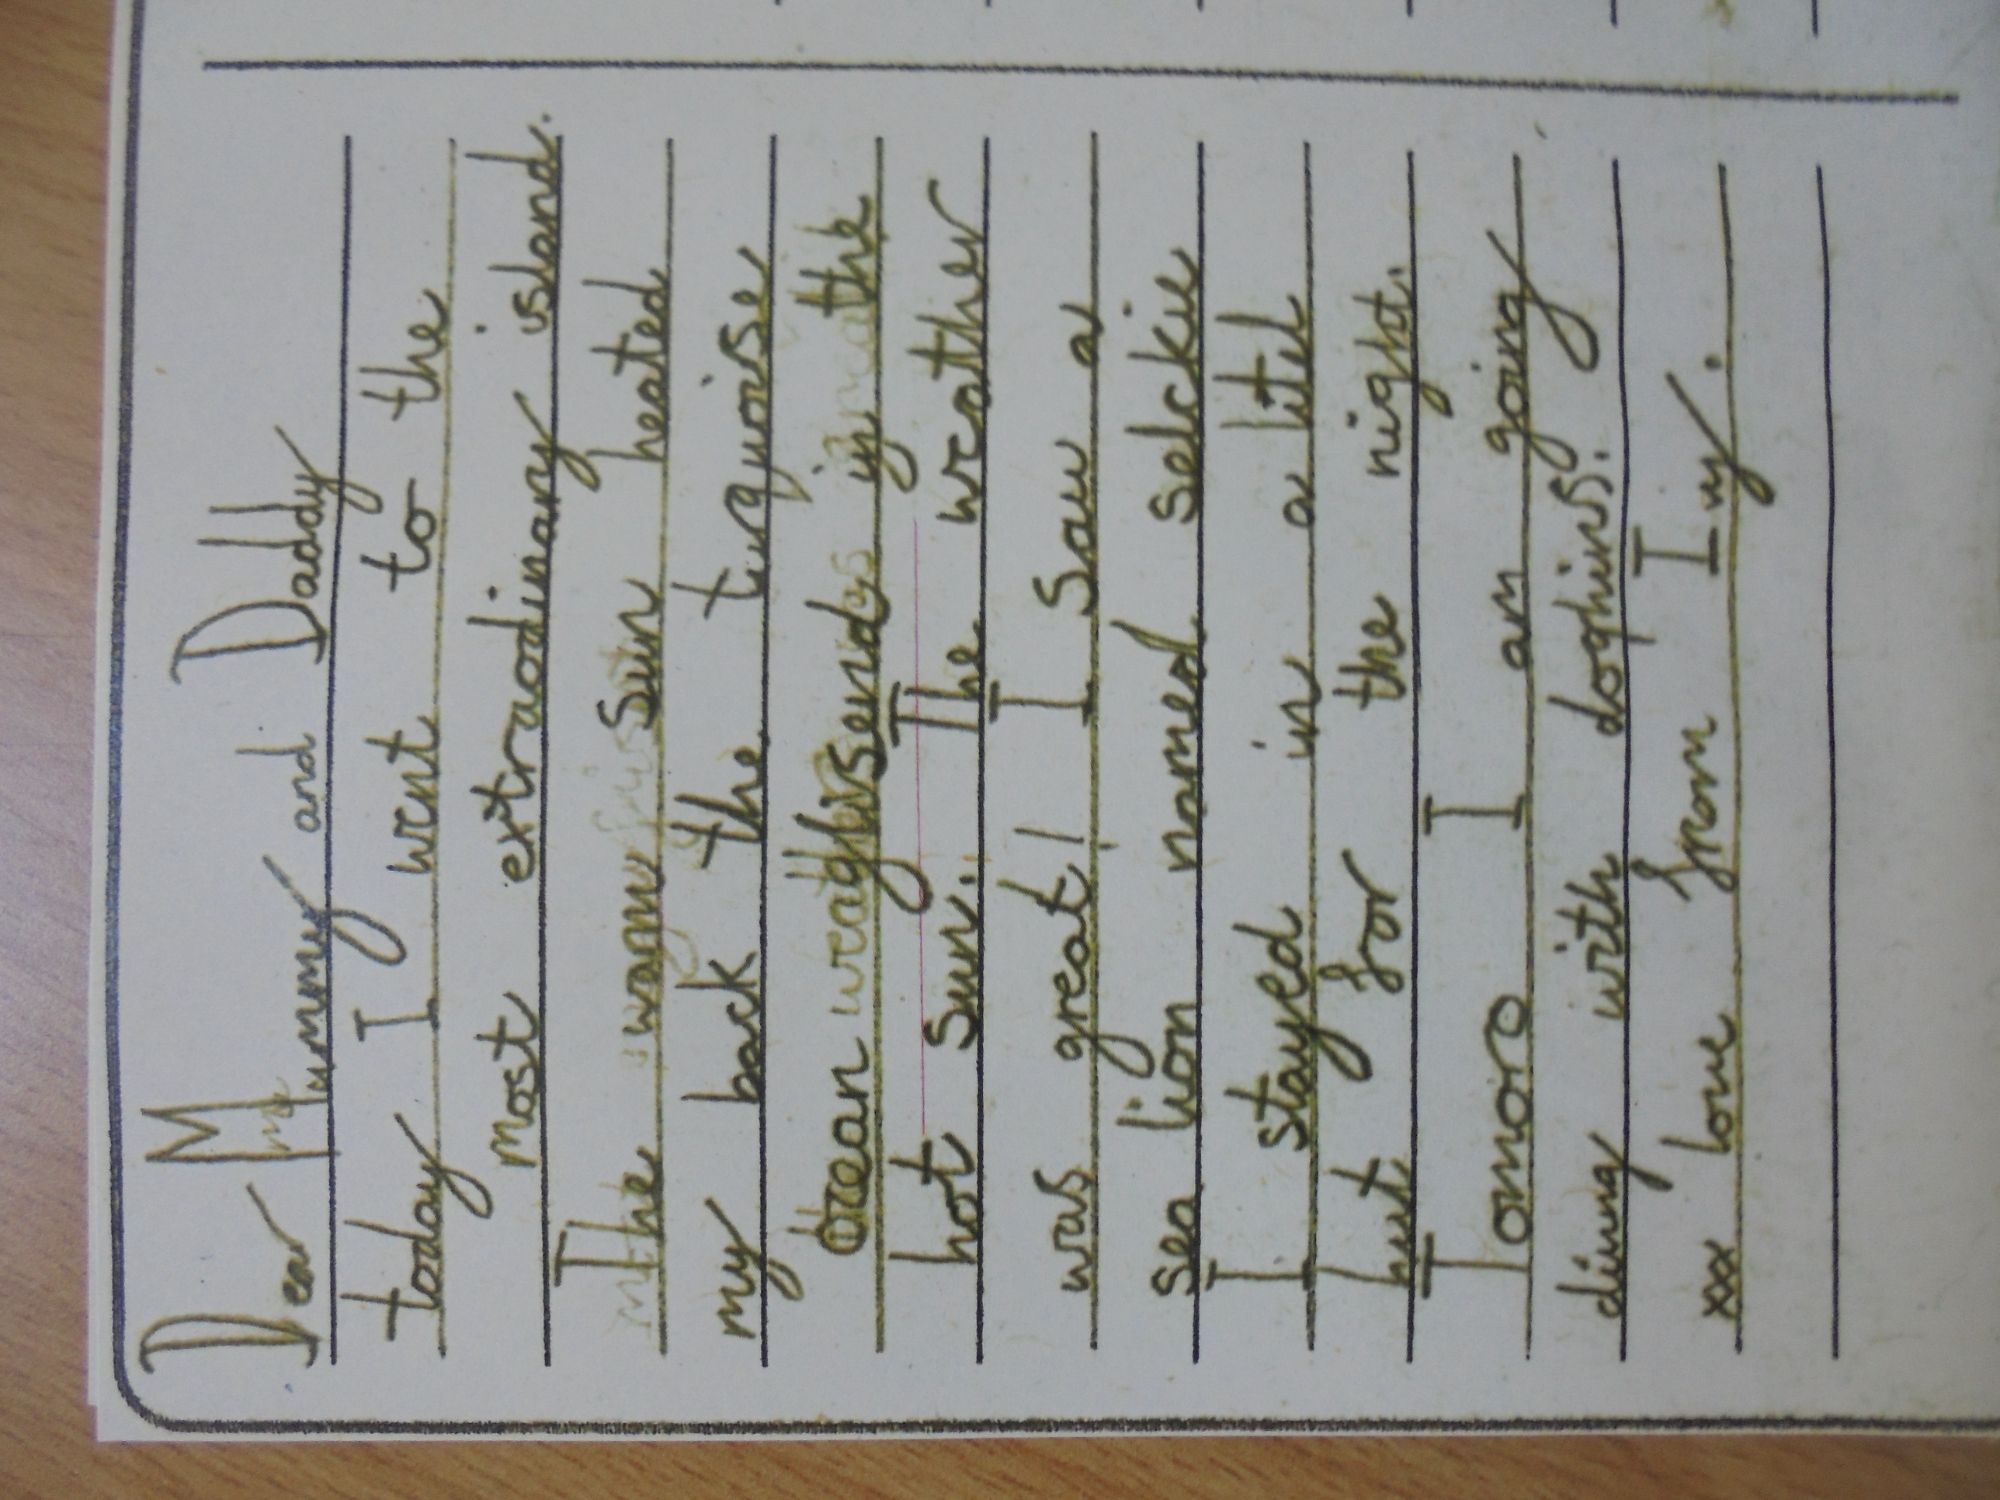 Dear Mummy and Daddy
today I went to the
most extraodinary island.
The warm sun heated
my back the turquoise
Ocean glisend in the
hot sun. The weather
was great! I saw a
sea lion named selckie
I stayed in a litel
hut for the night.
Tomoro I am going
diving with dophins.
xx love from Ivy.